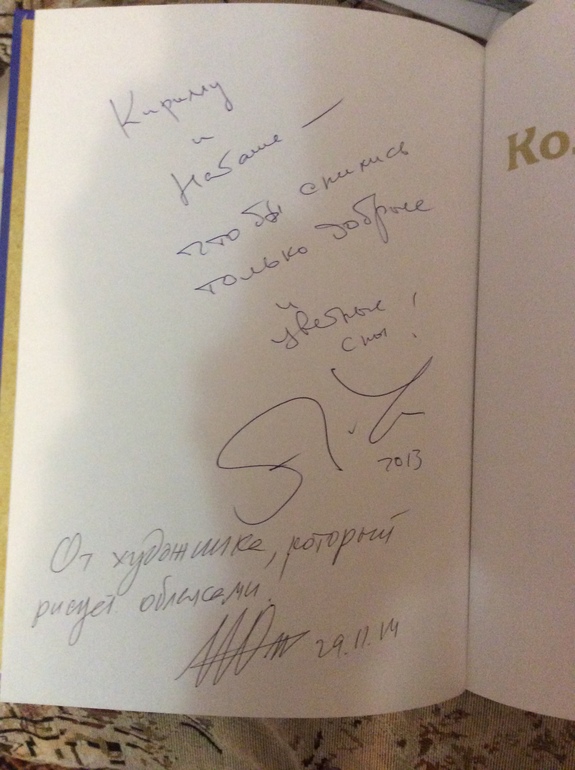 Кириллу
и
Наташе —
чтобы снились
только добрые
и
цветные
сны!
2013
От художника, который
рисует облаками.
29.11.14
Ко